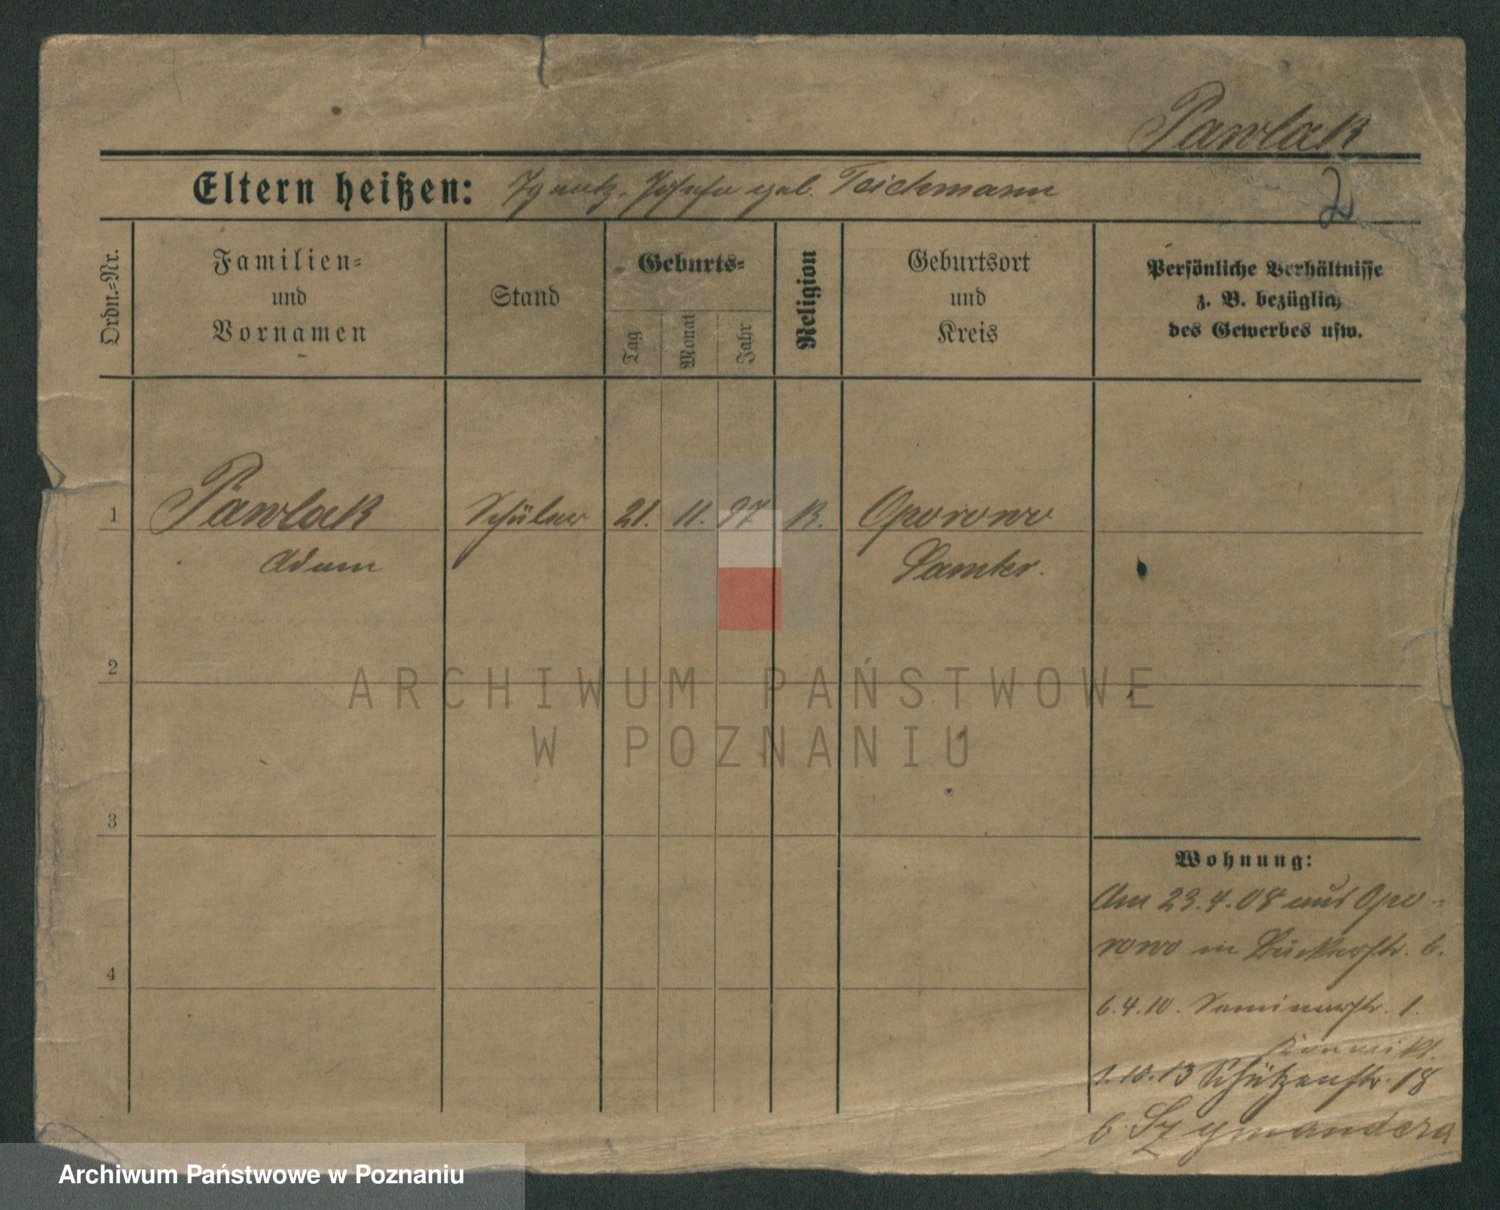 Pawlak
Eltern heißen: Ignatz. Josefa geb. Teichmann
2
Ordn.-Nr.
Familien-
und
Vornamen
Stand
Geburts-
Tag
Monat
Jahr
Religion
Geburtsort
und
Kreis
Persönliche Verhältnisse
z. B. bezüglich
des Gewerbes usw.
1
Pawlak
Adam
Schüler
21.
11.
97
K.
Oporowo
Samter.
2
ARCHIWUM PAŃSTWOWE
W POZNANIU
3
4
Wohnung:
Am 23.4.08 aus Opo-
rowo in Bäckerstr. 6.
6.4.10. Seminarstr. 1.
1.10.13 Schützenstr. 18
b. Szymandera
Archiwum Państwowe w Poznaniu